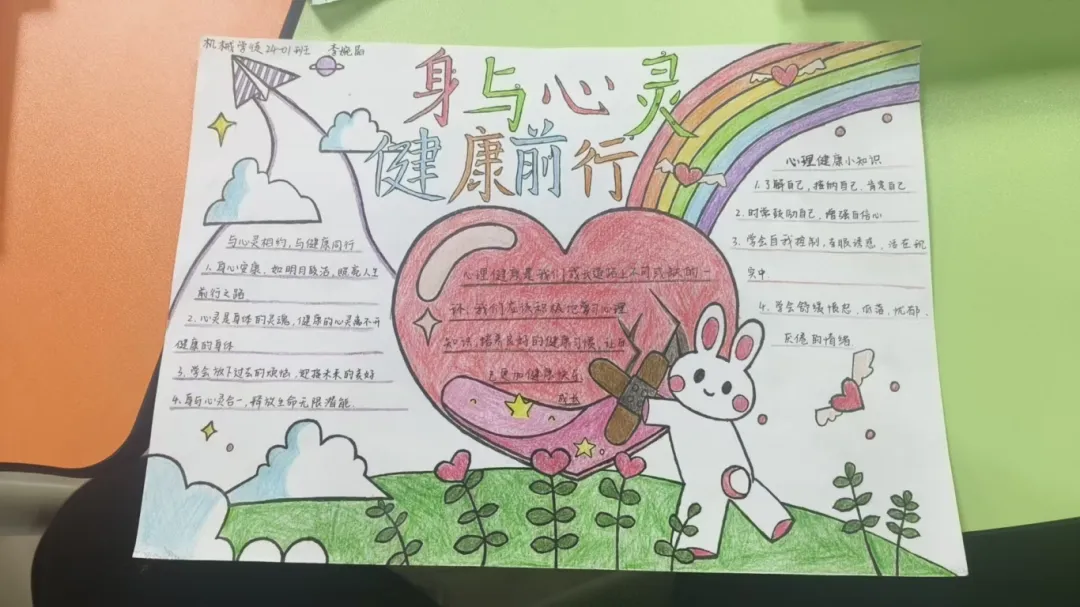 机械学硕24-01班 李婉茹
身与心灵
健康前行
与心灵相约，与健康同行
1. 身心安康，如明月皎洁，照亮人生
前行之路
2. 心灵是身体的灵魂，健康的心灵离不开
健康的身体
3. 学会放下过去的烦恼，迎接未来的美好
4. 身与心灵合一，释放生命无限潜能.
心理健康是我们成长道路上不可或缺的一
环，我们应该积极地学习心理
知识，培养良好的健康习惯，让自
己更加健康快乐
成长
心理健康小知识
1. 了解自己，接纳自己，肯定自己
2. 时常鼓励自己，增强自信心
3. 学会自我控制，拒绝诱惑，活在现
实中.
4. 学会舒缓愤怒，低落，忧郁，
厌倦的情绪